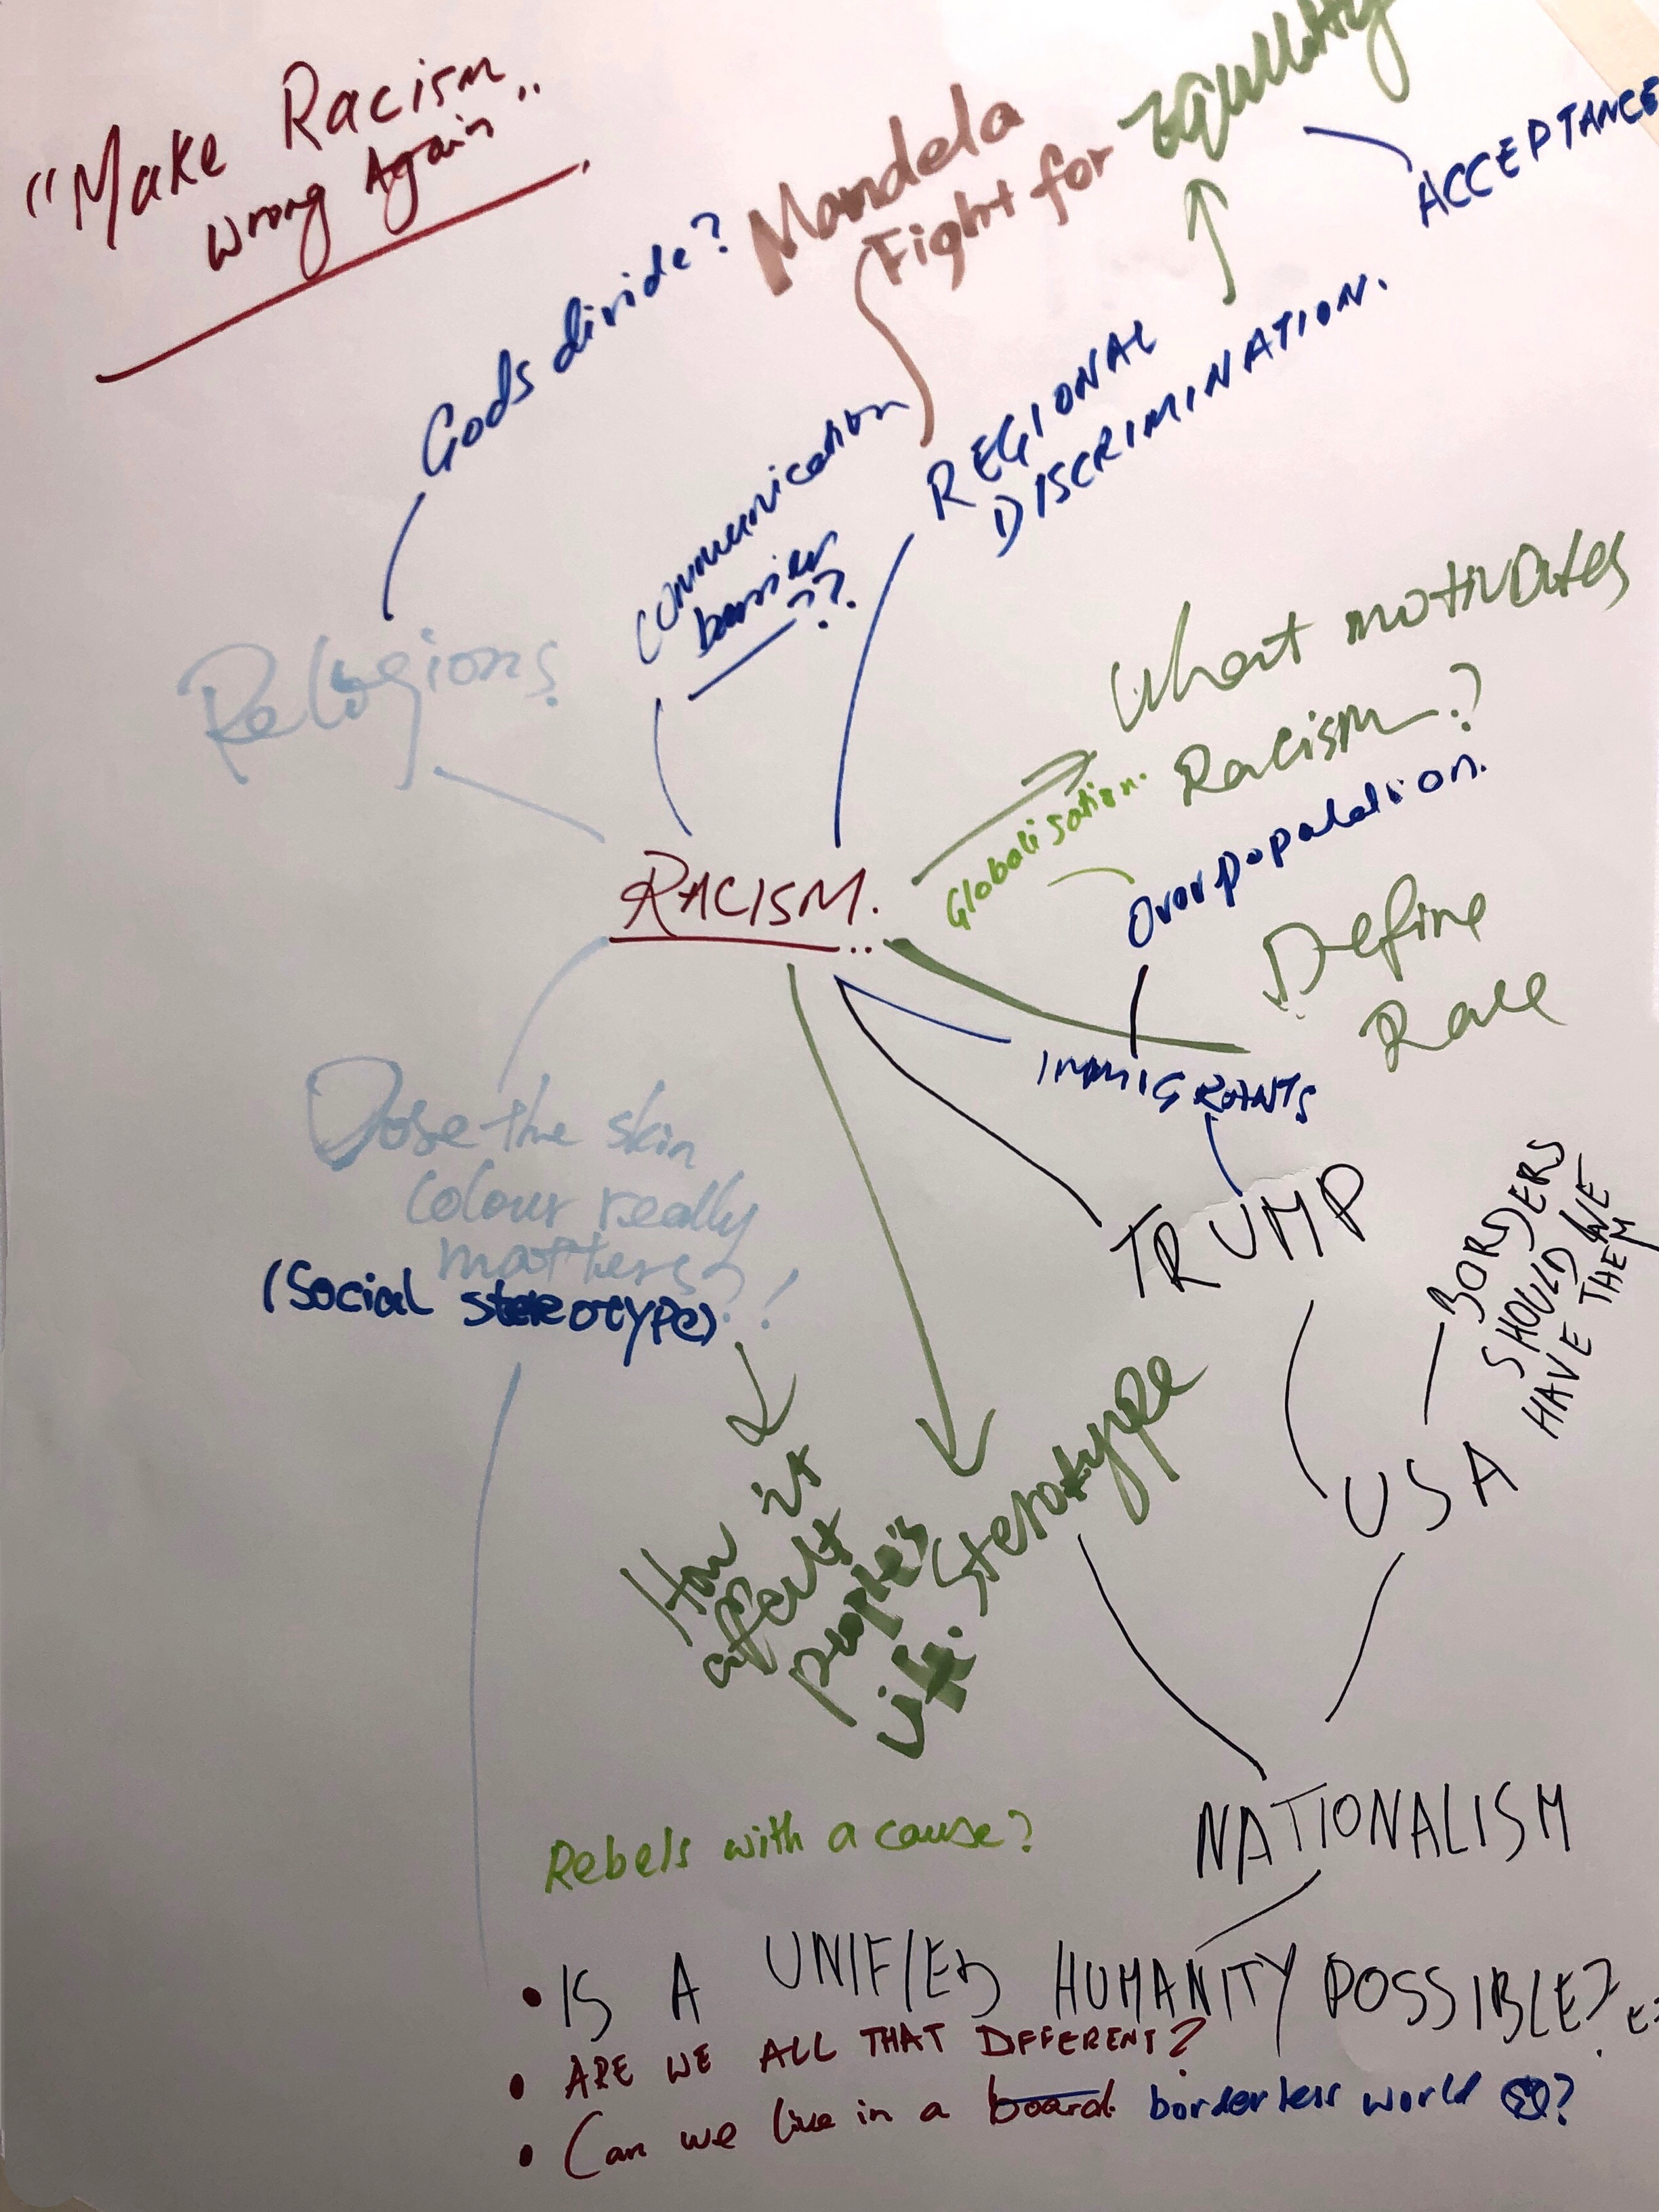 "Make Racism..
Wrong Again"
Mandela
Fight for Equllity
ACCEPTANCE
Gods divide?
communication
barrier
??
REGIONAL
DISCRIMINATION.
Religions
What motivates
Racism?
Globalisation.
Overpopulation.
RACISM.
Define
Race
IMMIGRANTS
Dose the skin
colour really
matters?!
(Social stereotype)
TRUMP
BORDERS
SHOULD WE
HAVE THEM
USA
How it
affect
people's
life.
Sterotype
NATIONALISM
Rebels with a cause?
• IS A UNIFIED HUMANITY POSSIBLE?
• ARE WE ALL THAT DIFFERENT?
• Can we live in a board borderless world ?